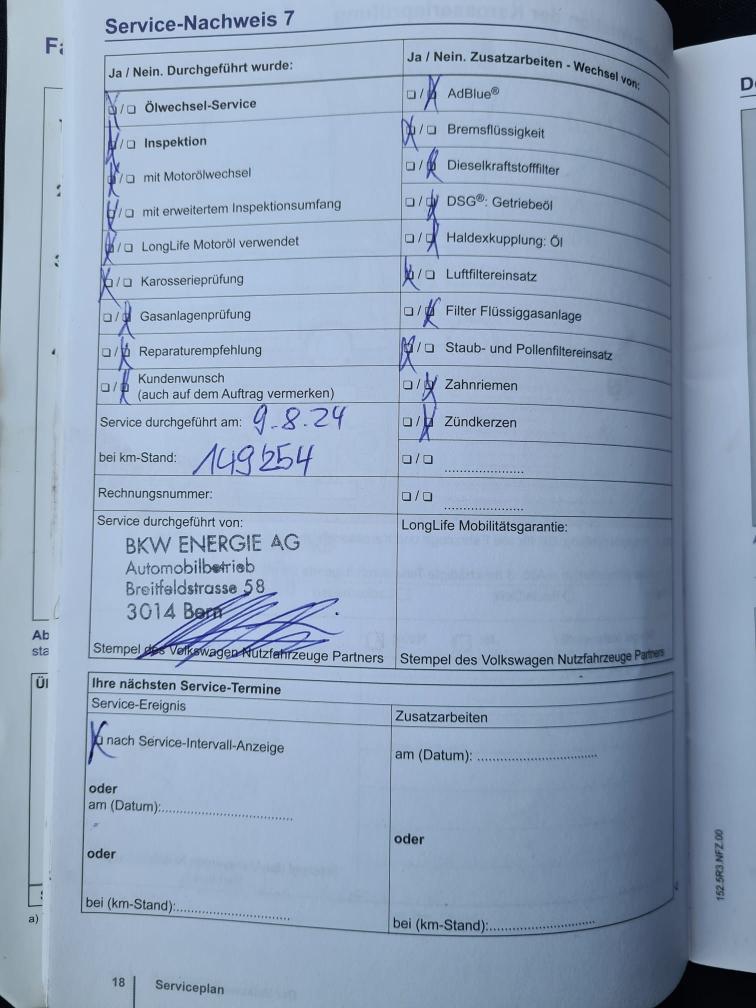 Service-Nachweis 7
Ja / Nein. Durchgeführt wurde:
☒/☐ Ölwechsel-Service
☒/☐ Inspektion
☒/☐ mit Motorölwechsel
☒/☐ mit erweitertem Inspektionsumfang
☒/☐ LongLife Motoröl verwendet
☒/☐ Karosserieprüfung
☐/☒ Gasanlagenprüfung
☐/☒ Reparaturempfehlung
☐/☒ Kundenwunsch
(auch auf dem Auftrag vermerken)
Service durchgeführt am: 9.8.24
bei km-Stand: 149254
Rechnungsnummer:
Service durchgeführt von:
BKW ENERGIE AG
Automobilbetrieb
Breitfeldstrasse 58
3014 Bern
Stempel des Volkswagen Nutzfahrzeuge Partners
Ja / Nein. Zusatzarbeiten - Wechsel von:
☐/☒ AdBlue®
☒/☐ Bremsflüssigkeit
☐/☒ Dieselkraftstofffilter
☐/☒ DSG®: Getriebeöl
☐/☒ Haldexkupplung: Öl
☒/☐ Luftfiltereinsatz
☐/☒ Filter Flüssiggasanlage
☒/☐ Staub- und Pollenfiltereinsatz
☐/☒ Zahnriemen
☐/☒ Zündkerzen
☐/☐ ......................
☐/☐ ......................
LongLife Mobilitätsgarantie:
Stempel des Volkswagen Nutzfahrzeuge Partners
Ihre nächsten Service-Termine
Service-Ereignis
☒ nach Service-Intervall-Anzeige
oder
am (Datum):..............................
oder
bei (km-Stand):..........................
Zusatzarbeiten
am (Datum): ..............................
oder
bei (km-Stand):..........................
18 Serviceplan
152.5R3.NFZ.00
Ab
sta
a)